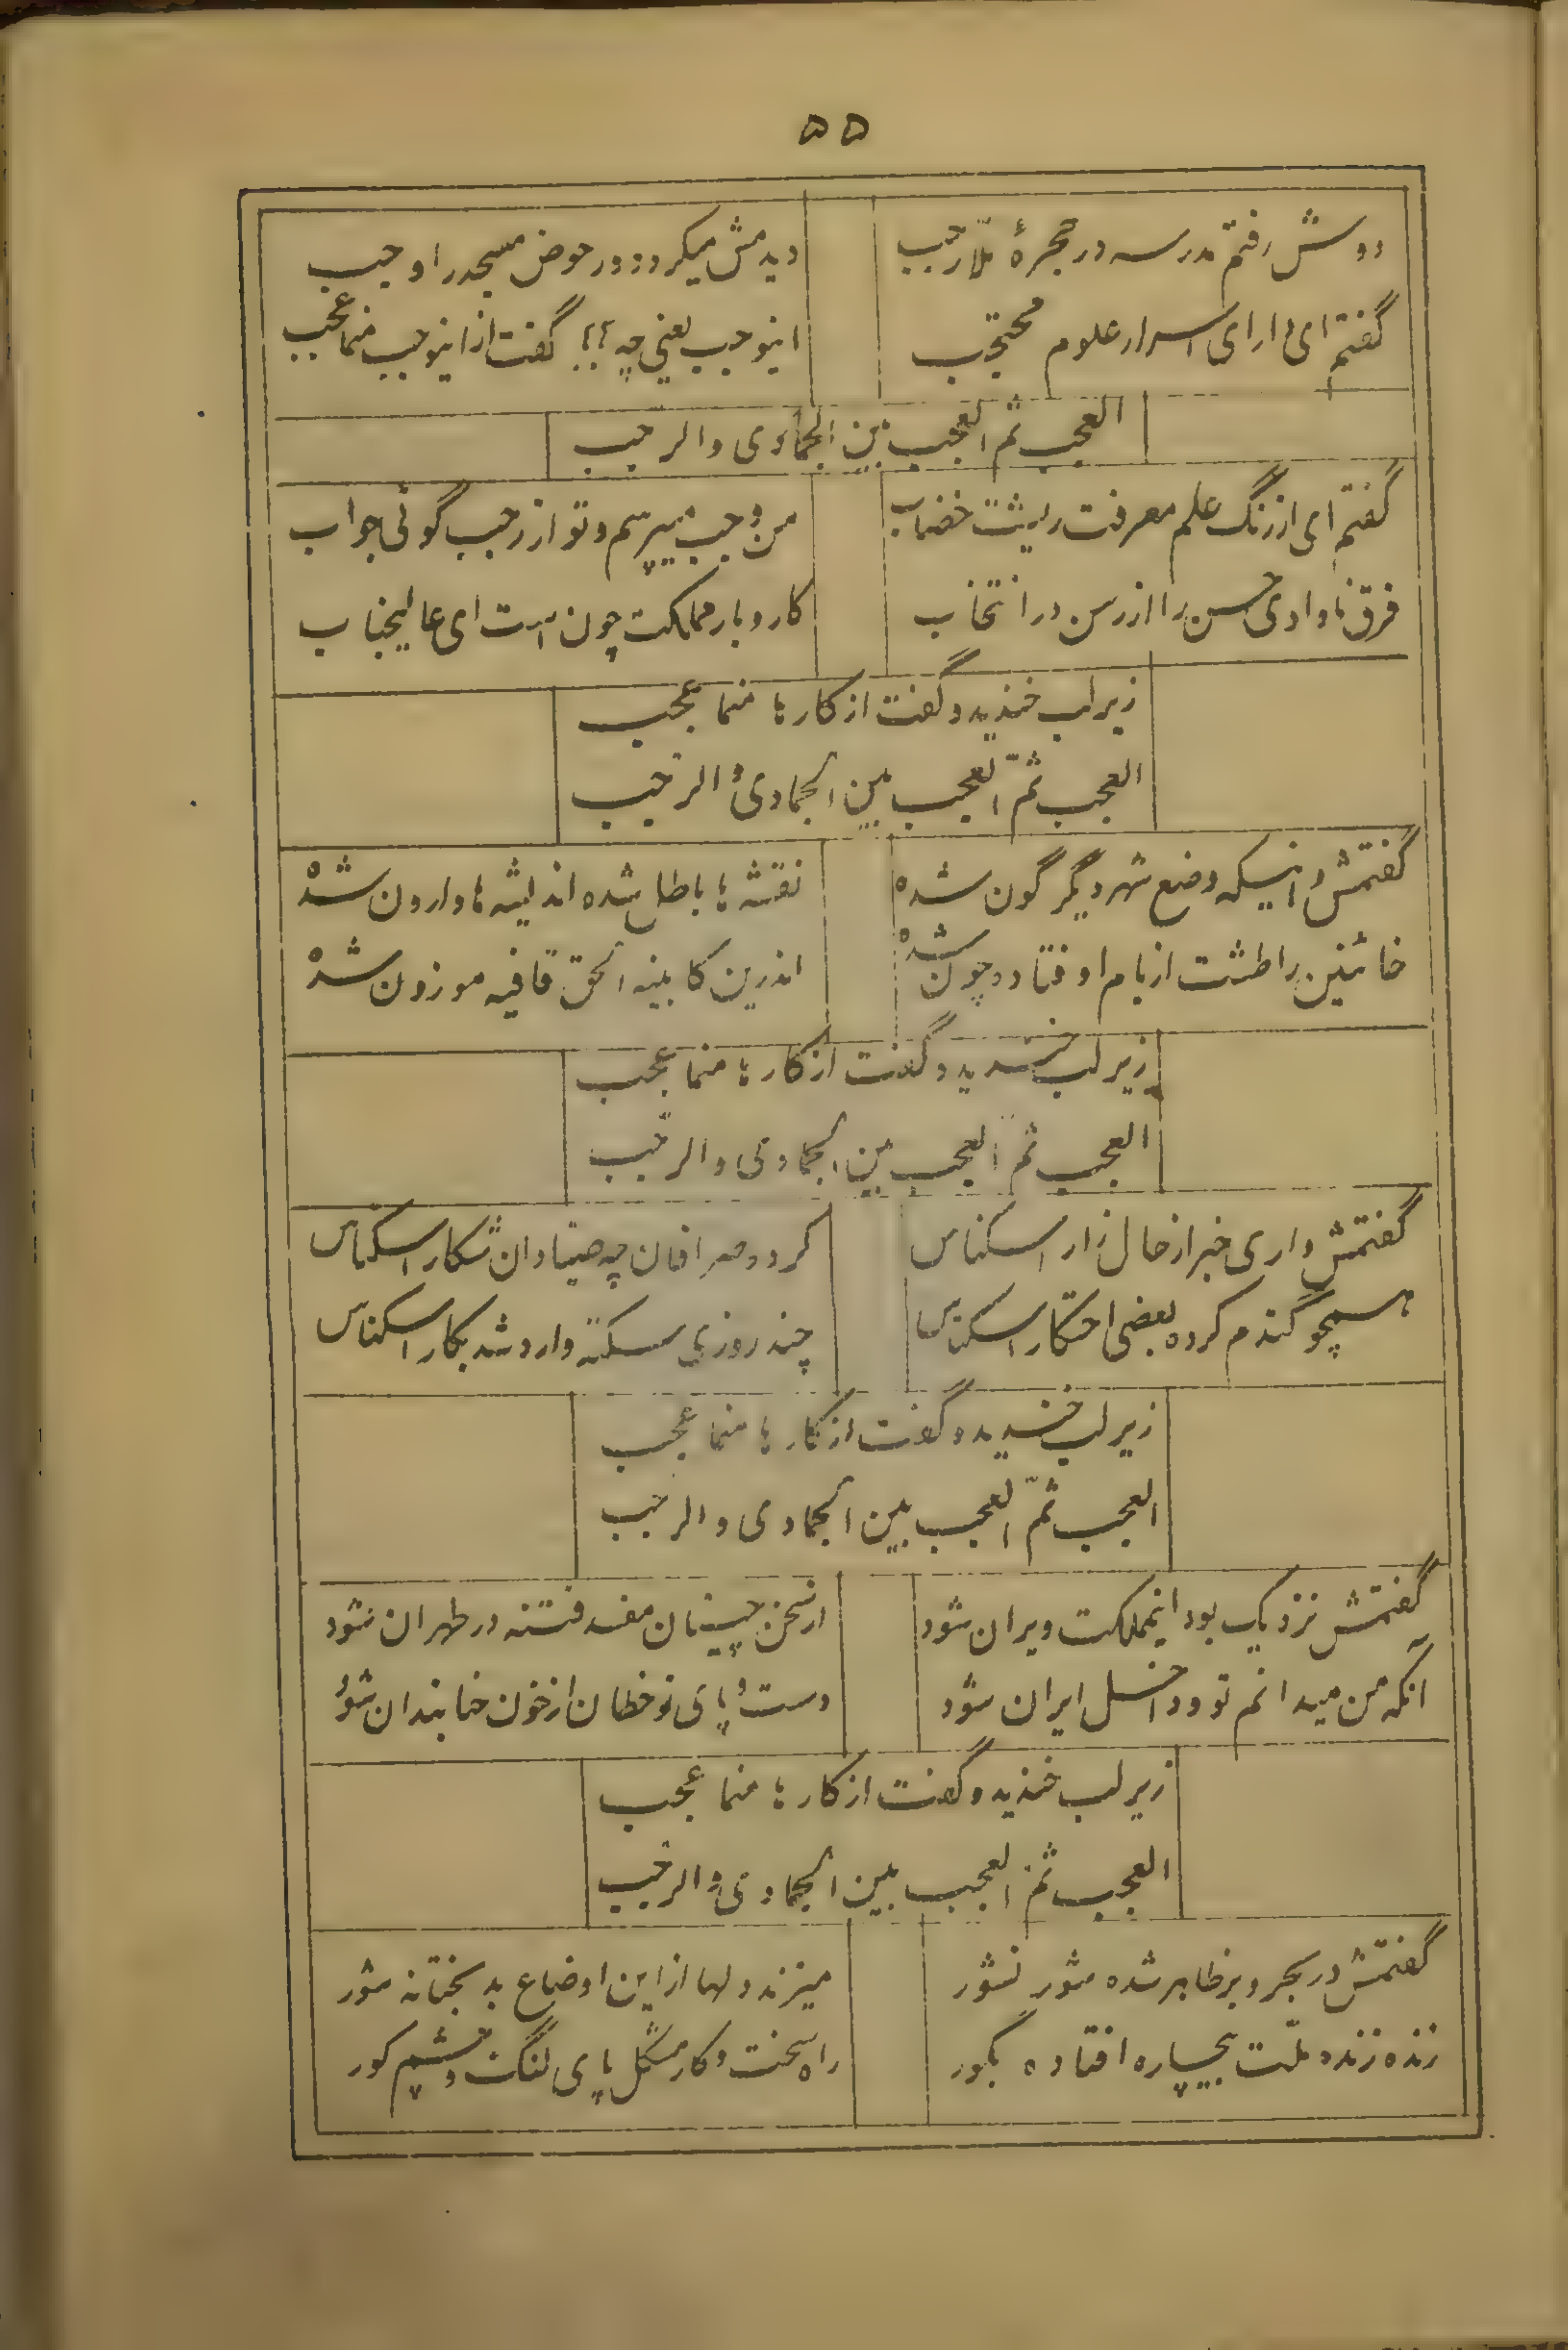 ۵۵
دوش رفتم مدرسه در حجرهٔ ملّا رجب
دیدمش میکرد دور حوض مسجد را وجب
گفتم ای دارای اسرار علوم محتجب
اینوجب یعنی چه؟؟ گفت از اینوجب منما عجب
العجب ثم العجب بین الجمادی و الرجب
گفتم ای از رنگ علم معرفت ریشت خضاب
من وجب میپرسم و تو از رجب گوئی جواب
فرق نادادی حسن را از رسن در انتخاب
کار و بار مملکت چون است ای عالیجناب
زیر لب خندید و گفت از کارها منما عجب
العجب ثمّ العجب بین الجمادی و الرجب
گفتمش دانیکه وضع شهر دیگر گون شده
نقشه ها باطل شده اندیشه ها وارون شده
خائنین را طشت از بام اوفتاد و چون شده
اندرین کابینه الحق قافیه موزون شده
زیر لب خندید و گفت از کارها منما عجب
العجب ثم العجب بین الجمادی و الرجب
گفتمش داری خبر از حال زار اسکناس
کرد و صرافان چه صیادان شکار اسکناس
همچو گندم کرده بعضی احتکار اسکناس
چند روزی سکته وارد شد بکار اسکناس
زیر لب خندید و گفت از کارها منما عجب
العجب ثمّ العجب بین الجمادی و الرجب
گفتمش نزدیک بود اینمملکت ویران شود
از سخن چینان مفسد فتنه در طهران شود
آنکه من میدانم تو داخل ایران شود
دست و پای نوخطان از خون حنابندان شود
زیر لب خندید و گفت از کارها منما عجب
العجب ثمّ العجب بین الجمادی و الرجب
گفتمش در بحر و بر ظاهر شده شور نشور
میزند دلها از این اوضاع بدبختانه شور
زنده زنده ملّت بیچاره افتاده بگور
راه سخت و کار مشکل پای لنگ و چشم کور